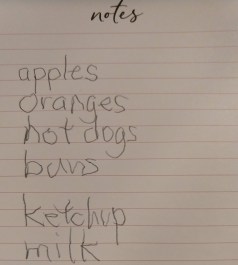 notes
apples
oranges
hot dogs
buns
ketchup
milk